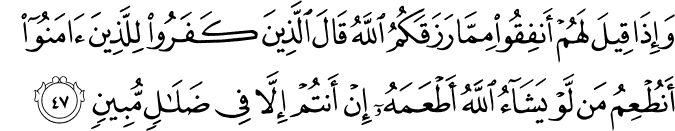 وَإِذَا قِيلَ لَهُمۡ أَنفِقُواْ مِمَّا رَزَقَكُمُ ٱللَّهُ قَالَ ٱلَّذِينَ كَفَرُواْ لِلَّذِينَ ءَامَنُوٓاْ
أَنُطۡعِمُ مَن لَّوۡ يَشَآءُ ٱللَّهُ أَطۡعَمَهُۥٓ إِنۡ أَنتُمۡ إِلَّا فِي ضَلَٰلٖ مُّبِينٖ ٤٧